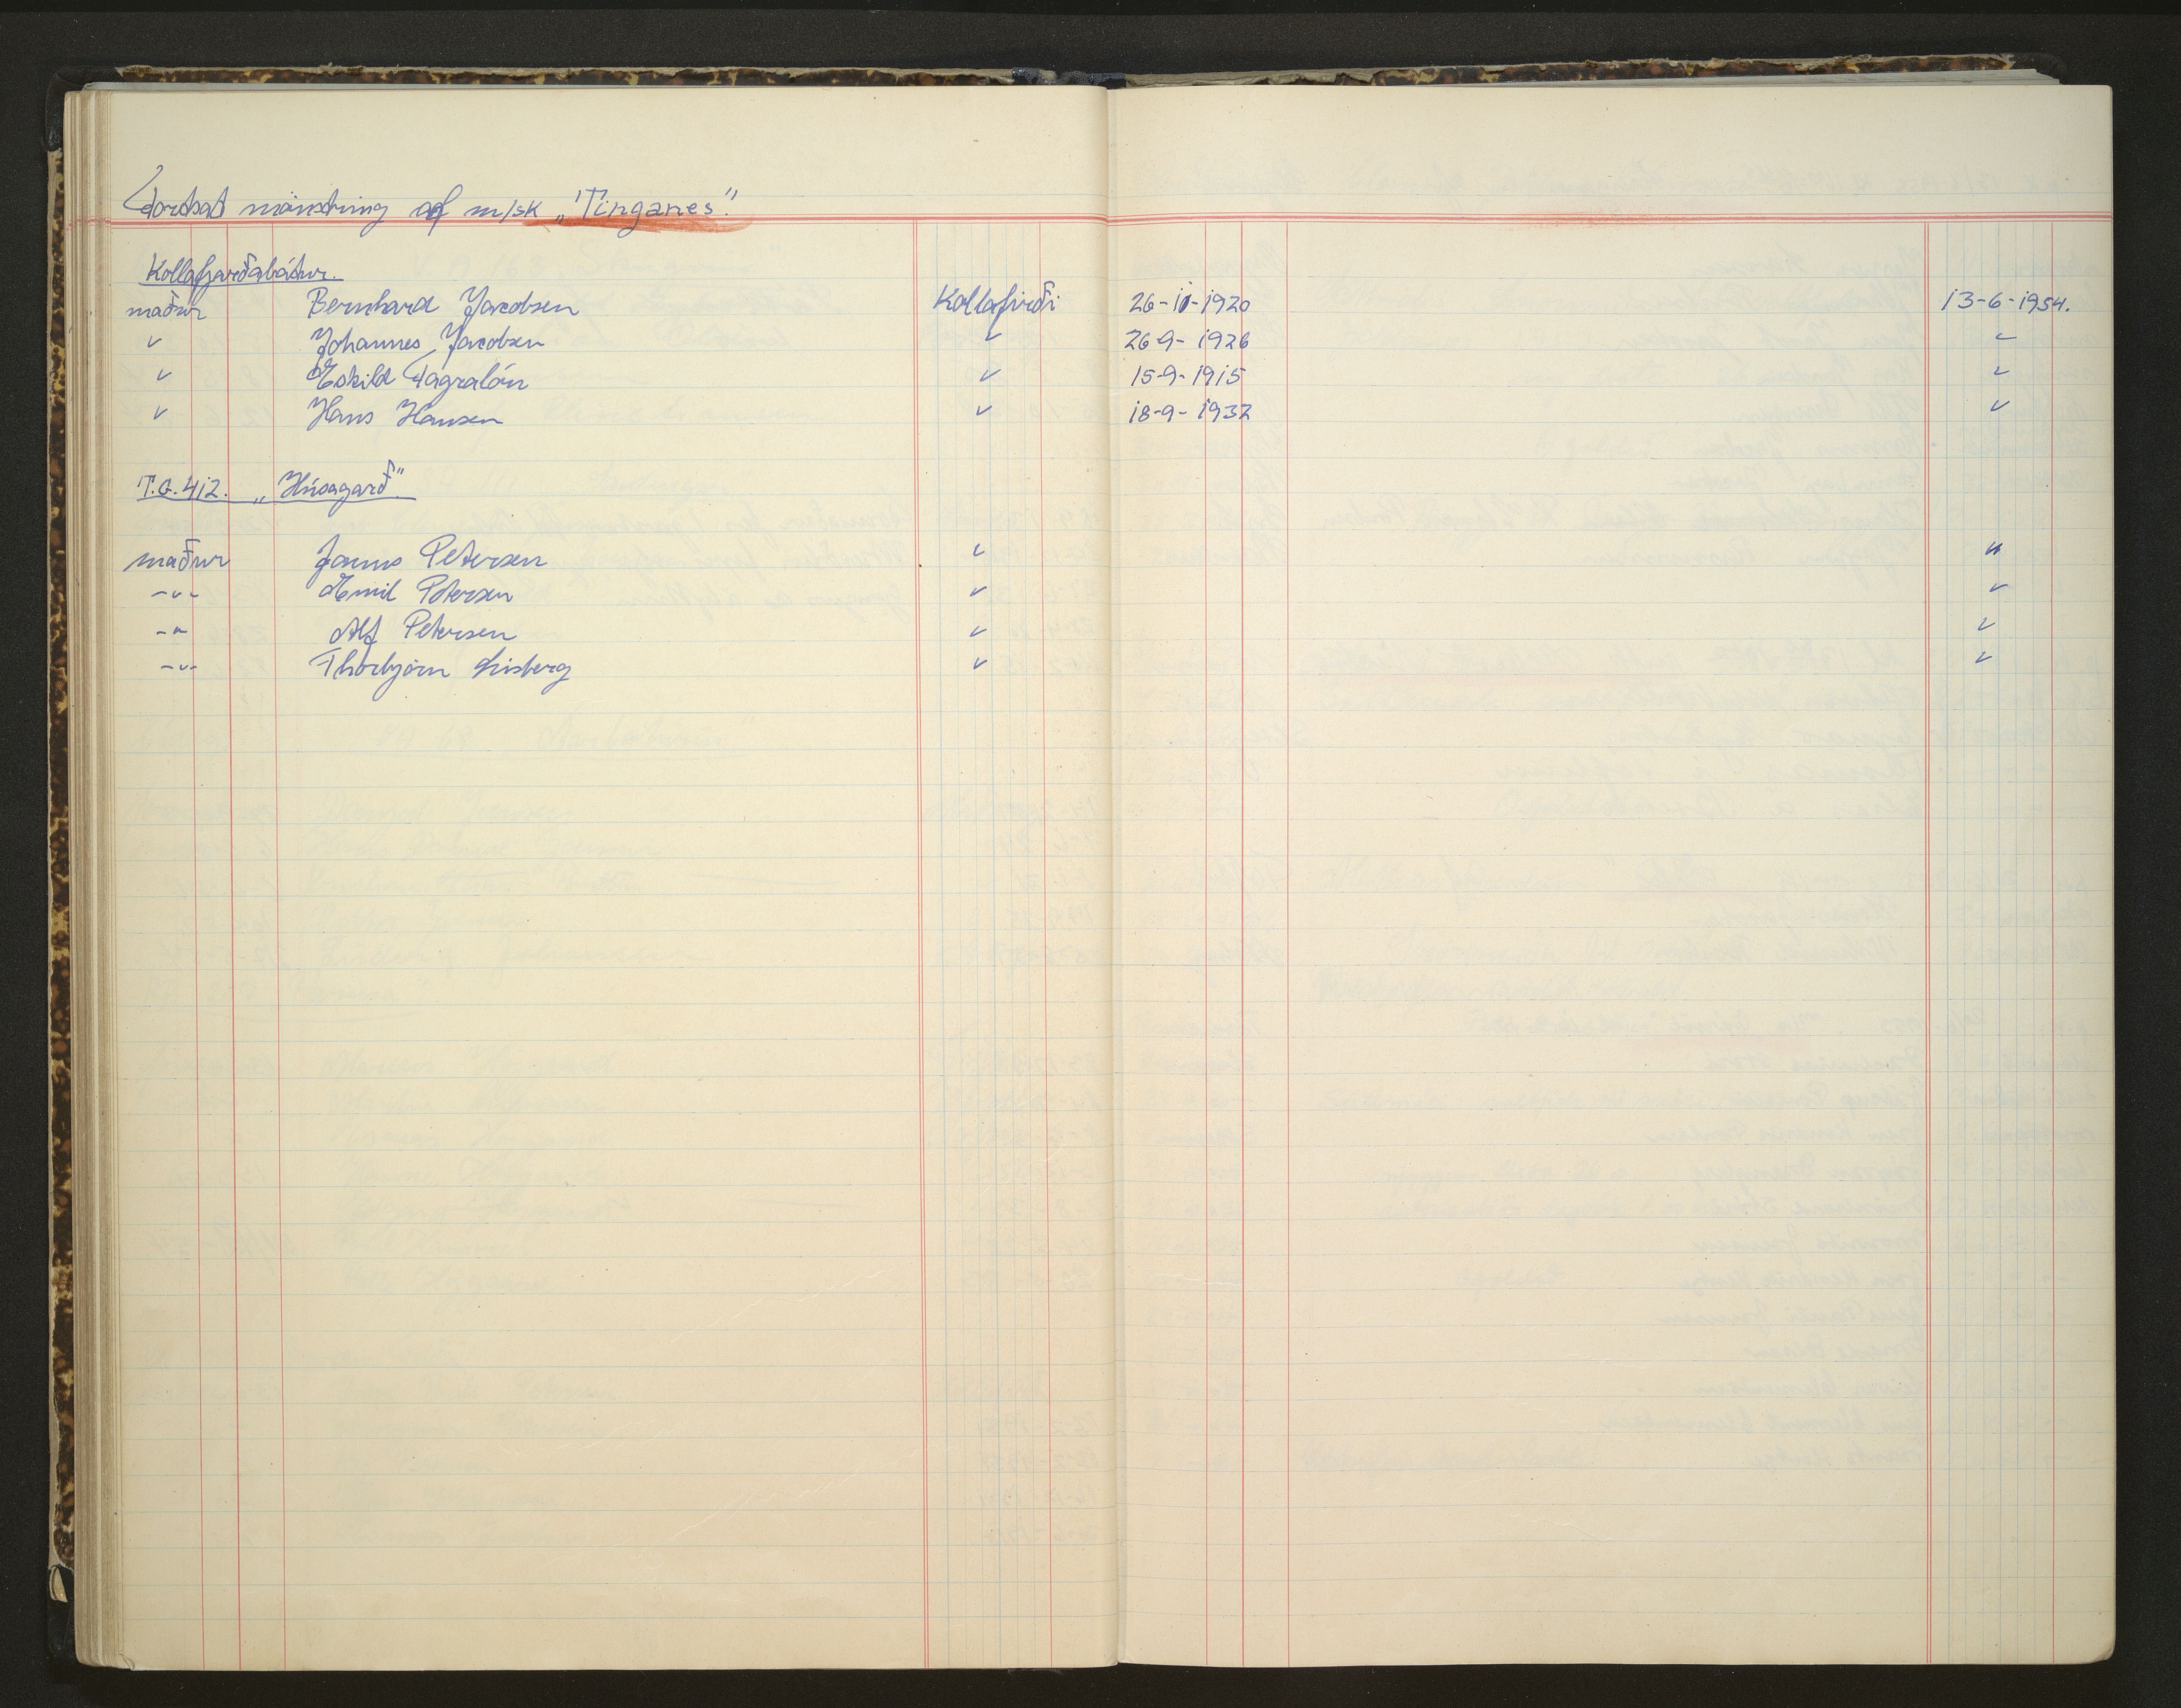 Fortsat mönstring af m/sk „Tinganes".
Kollafjarðabátur.
maður Bernhard Jacobsen Kollafirði 26-11-1920 13-6-1954.
" Johannes Jacobsen " 26-9-1926 "
" Eskild Fagralón " 15-9-1915 "
" Hans Hansen " 18-9-1932 "
T.G. 412. „Húsagarð"
maður Janus Petersen " "
-"- Emil Petersen " "
-"- Alf Petersen " "
-"- Thorbjörn Lisberg " "